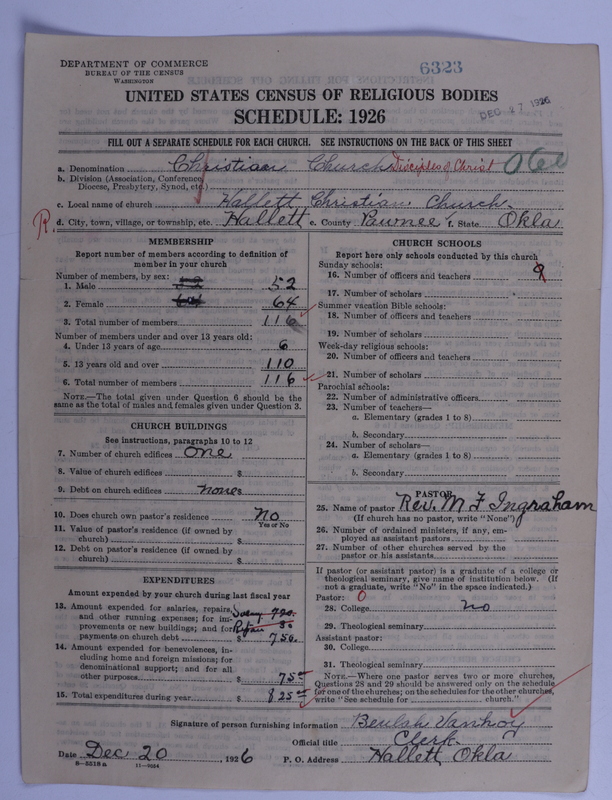 DEPARTMENT OF COMMERCE
BUREAU OF THE CENSUS
WASHINGTON
6323
DEC 27 1926
UNITED STATES CENSUS OF RELIGIOUS BODIES
SCHEDULE: 1926
FILL OUT A SEPARATE SCHEDULE FOR EACH CHURCH. SEE INSTRUCTIONS ON THE BACK OF THIS SHEET
a. Denomination Christian Church Disciples of Christ
b. Division (Association, Conference, Diocese, Presbytery, Synod, etc.)
c. Local name of church Hallett Christian Church.
R. d. City, town, village, or township, etc. Hallett e. County Pawnee f. State Okla
MEMBERSHIP
Report number of members according to definition of
member in your church
Number of members, by sex:
1. Male 52
2. Female 64
3. Total number of members 116
Number of members under and over 13 years old:
4. Under 13 years of age 6
5. 13 years old and over 110
6. Total number of members 116
NOTE.—The total given under Question 6 should be
same as the total of males and females given under Question 3.
CHURCH BUILDINGS
See instructions, paragraphs 10 to 12
7. Number of church edifices one
8. Value of church edifices $
9. Debt on church edifices none $
10. Does church own pastor's residence No
Yes or No
11. Value of pastor's residence (if owned by
church) $
12. Debt on pastor's residence (if owned by
church) $
EXPENDITURES
Amount expended by your church during last fiscal year
13. Amount expended for salaries, repairs,
and other running expenses; for im-
provements or new buildings; and for
payments on church debt $ 750.
14. Amount expended for benevolences, in-
cluding home and foreign missions; for
denominational support; and for all
other purposes $ 75
15. Total expenditures during year $ 825
CHURCH SCHOOLS
Report here only schools conducted by this church
Sunday schools:
16. Number of officers and teachers 9
17. Number of scholars
Summer vacation Bible schools:
18. Number of officers and teachers
19. Number of scholars
Week-day religious schools:
20. Number of officers and teachers
21. Number of scholars
Parochial schools:
22. Number of administrative officers
23. Number of teachers—
a. Elementary (grades 1 to 8)
b. Secondary
24. Number of scholars—
a. Elementary (grades 1 to 8)
b. Secondary
PASTOR
25. Name of pastor Rev. M F Ingraham
(If church has no pastor, write "None")
26. Number of ordained ministers, if any, em-
ployed as assistant pastors
27. Number of other churches served by the
pastor or his assistants
If pastor (or assistant pastor) is a graduate of a college or
theological seminary, give name of institution below. (If
not a graduate, write "No" in the space indicated.)
Pastor: 0
28. College no
29. Theological seminary
Assistant pastor:
30. College
31. Theological seminary
NOTE.—Where one pastor serves two or more churches,
Questions 28 and 29 should be answered only on the schedule
for one of the churches; on the schedules for the other churches,
write "See schedule for church."
Signature of person furnishing information Beulah
Official title Clerk.
Date Dec 20, 1926 P. O. Address Hallett Okla
8-5218a 11-9024